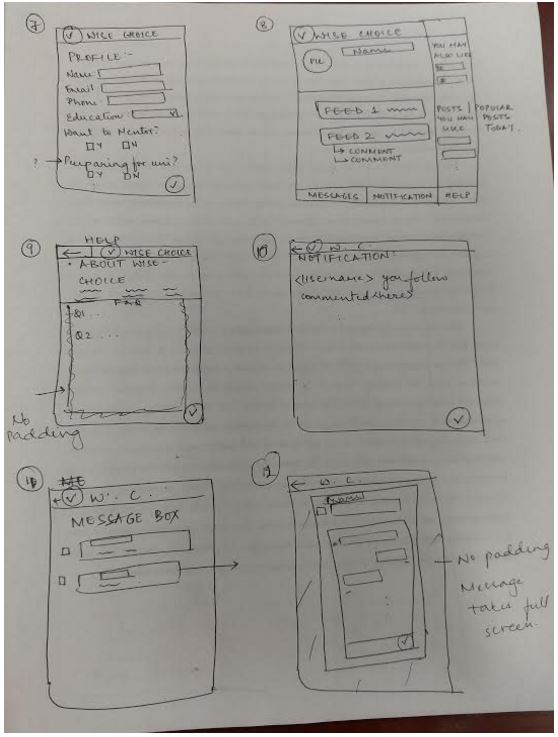 7
WISE CHOICE
PROFILE:-
Name:
Email
Phone:
Education:
Want to Mentor?
Y N
? → Preparing for uni?
Y N
8
WISE CHOICE
PIC
Name
YOU MAY
ALSO LIKE
FEED 1
FEED 2
↳ COMMENT
↳ COMMENT
POSTS
YOU MAY
LIKE
POPULAR
POSTS
TODAY.
MESSAGES NOTIFICATION HELP
9
HELP
← WISE CHOICE
• ABOUT WISE-
CHOICE
FAQ
Q1 ...
Q2 ...
No
padding
10
← W. C.
NOTIFICATION:
<Username> you follow
commented <here>
11
ME
← W. C.
MESSAGE BOX
12
← W. C.
Name
No padding
Message
takes full
screen.